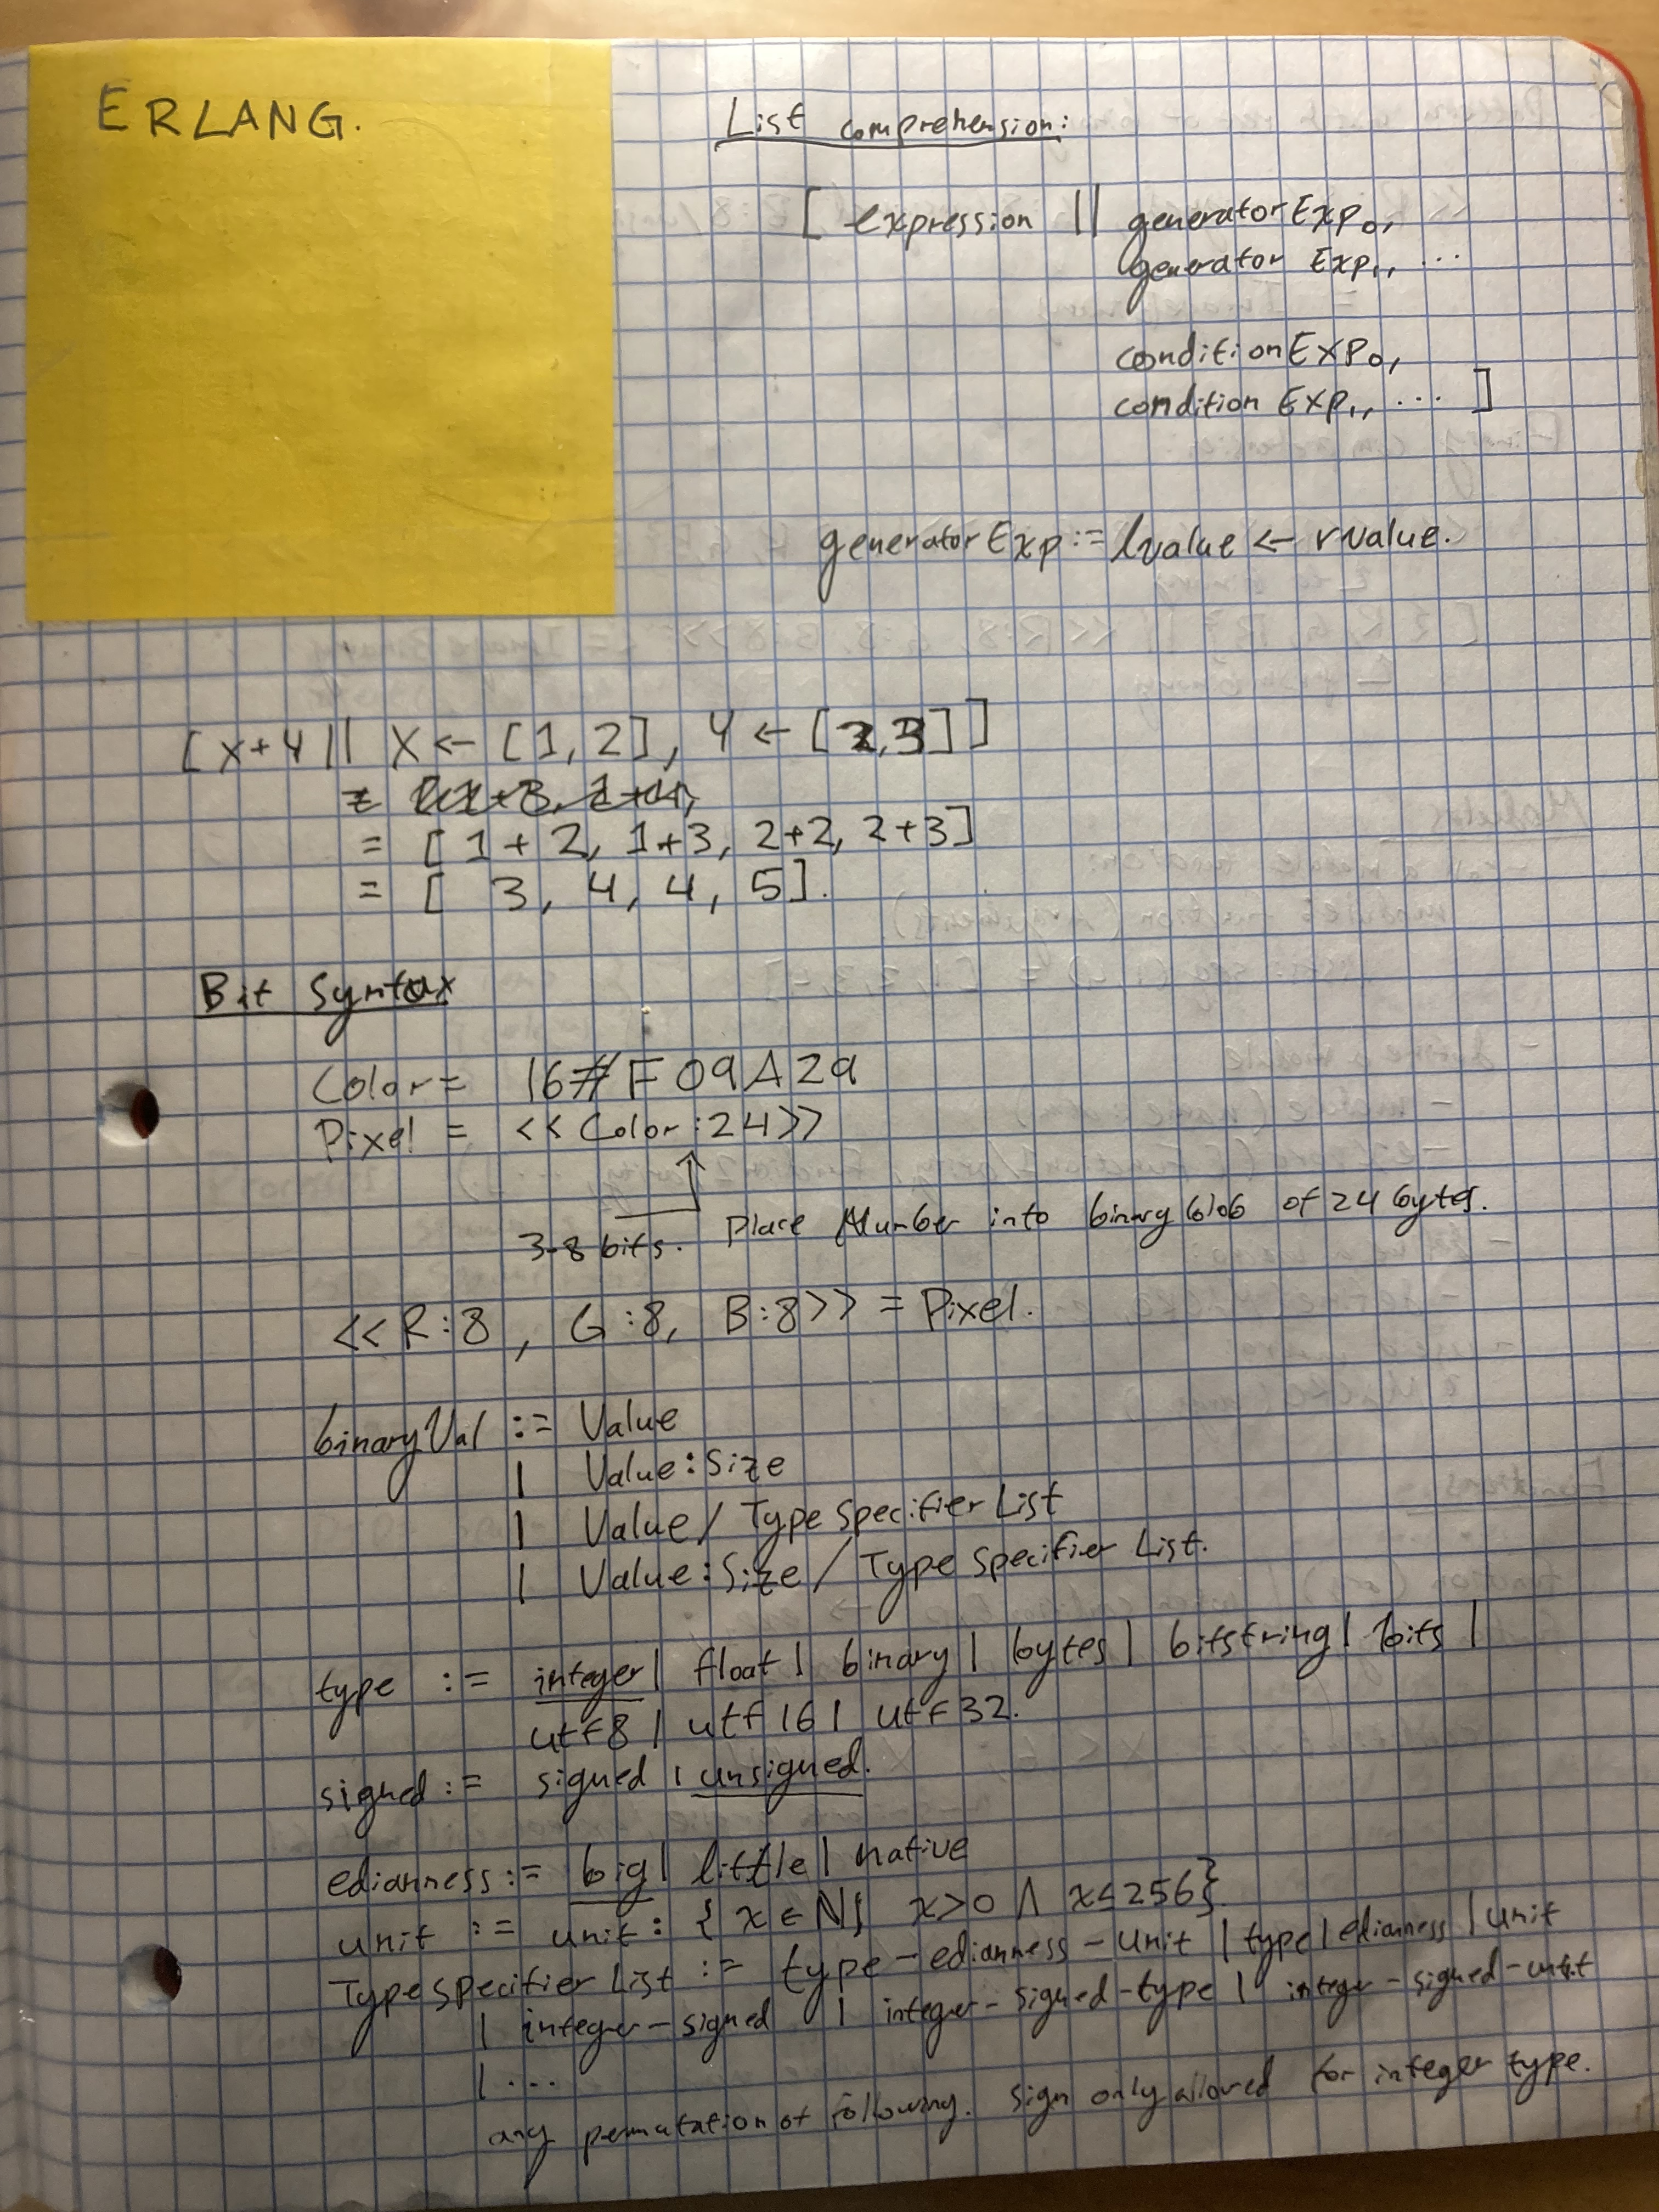 ERLANG.
List comprehension:
[ expression || generatorExp₀,
generator Exp₁, ...
conditionExp₀,
condition Exp₁, ... ]
generatorExp := lvalue ← rvalue.
[x+y || X ← [1, 2], Y ← [2,3]]
=
= [1+2, 1+3, 2+2, 2+3]
= [ 3, 4, 4, 5].
Bit Syntax
Color = 16#F09A29
Pixel = <<Color:24>>
3-8 bits. Place Number into binary blob of 24 bytes.
<<R:8, G:8, B:8>> = Pixel.
binaryVal ::= Value
| Value:Size
| Value/ TypeSpecifierList
| Value:Size/ TypeSpecifier List.
type := integer | float | binary | bytes | bitstring | bits |
utf8 | utf16 | utf32.
signed := signed | unsigned.
edianness := big | little | native
unit := unit: {x ∈ ℕ| x>0 ∧ x≤256}
TypeSpecifier List := type-edianness-unit | type | edianness | unit
| integer-signed | integer-signed-type | integer-signed-unit
| ...
any permutation of following. sign only allowed for integer type.